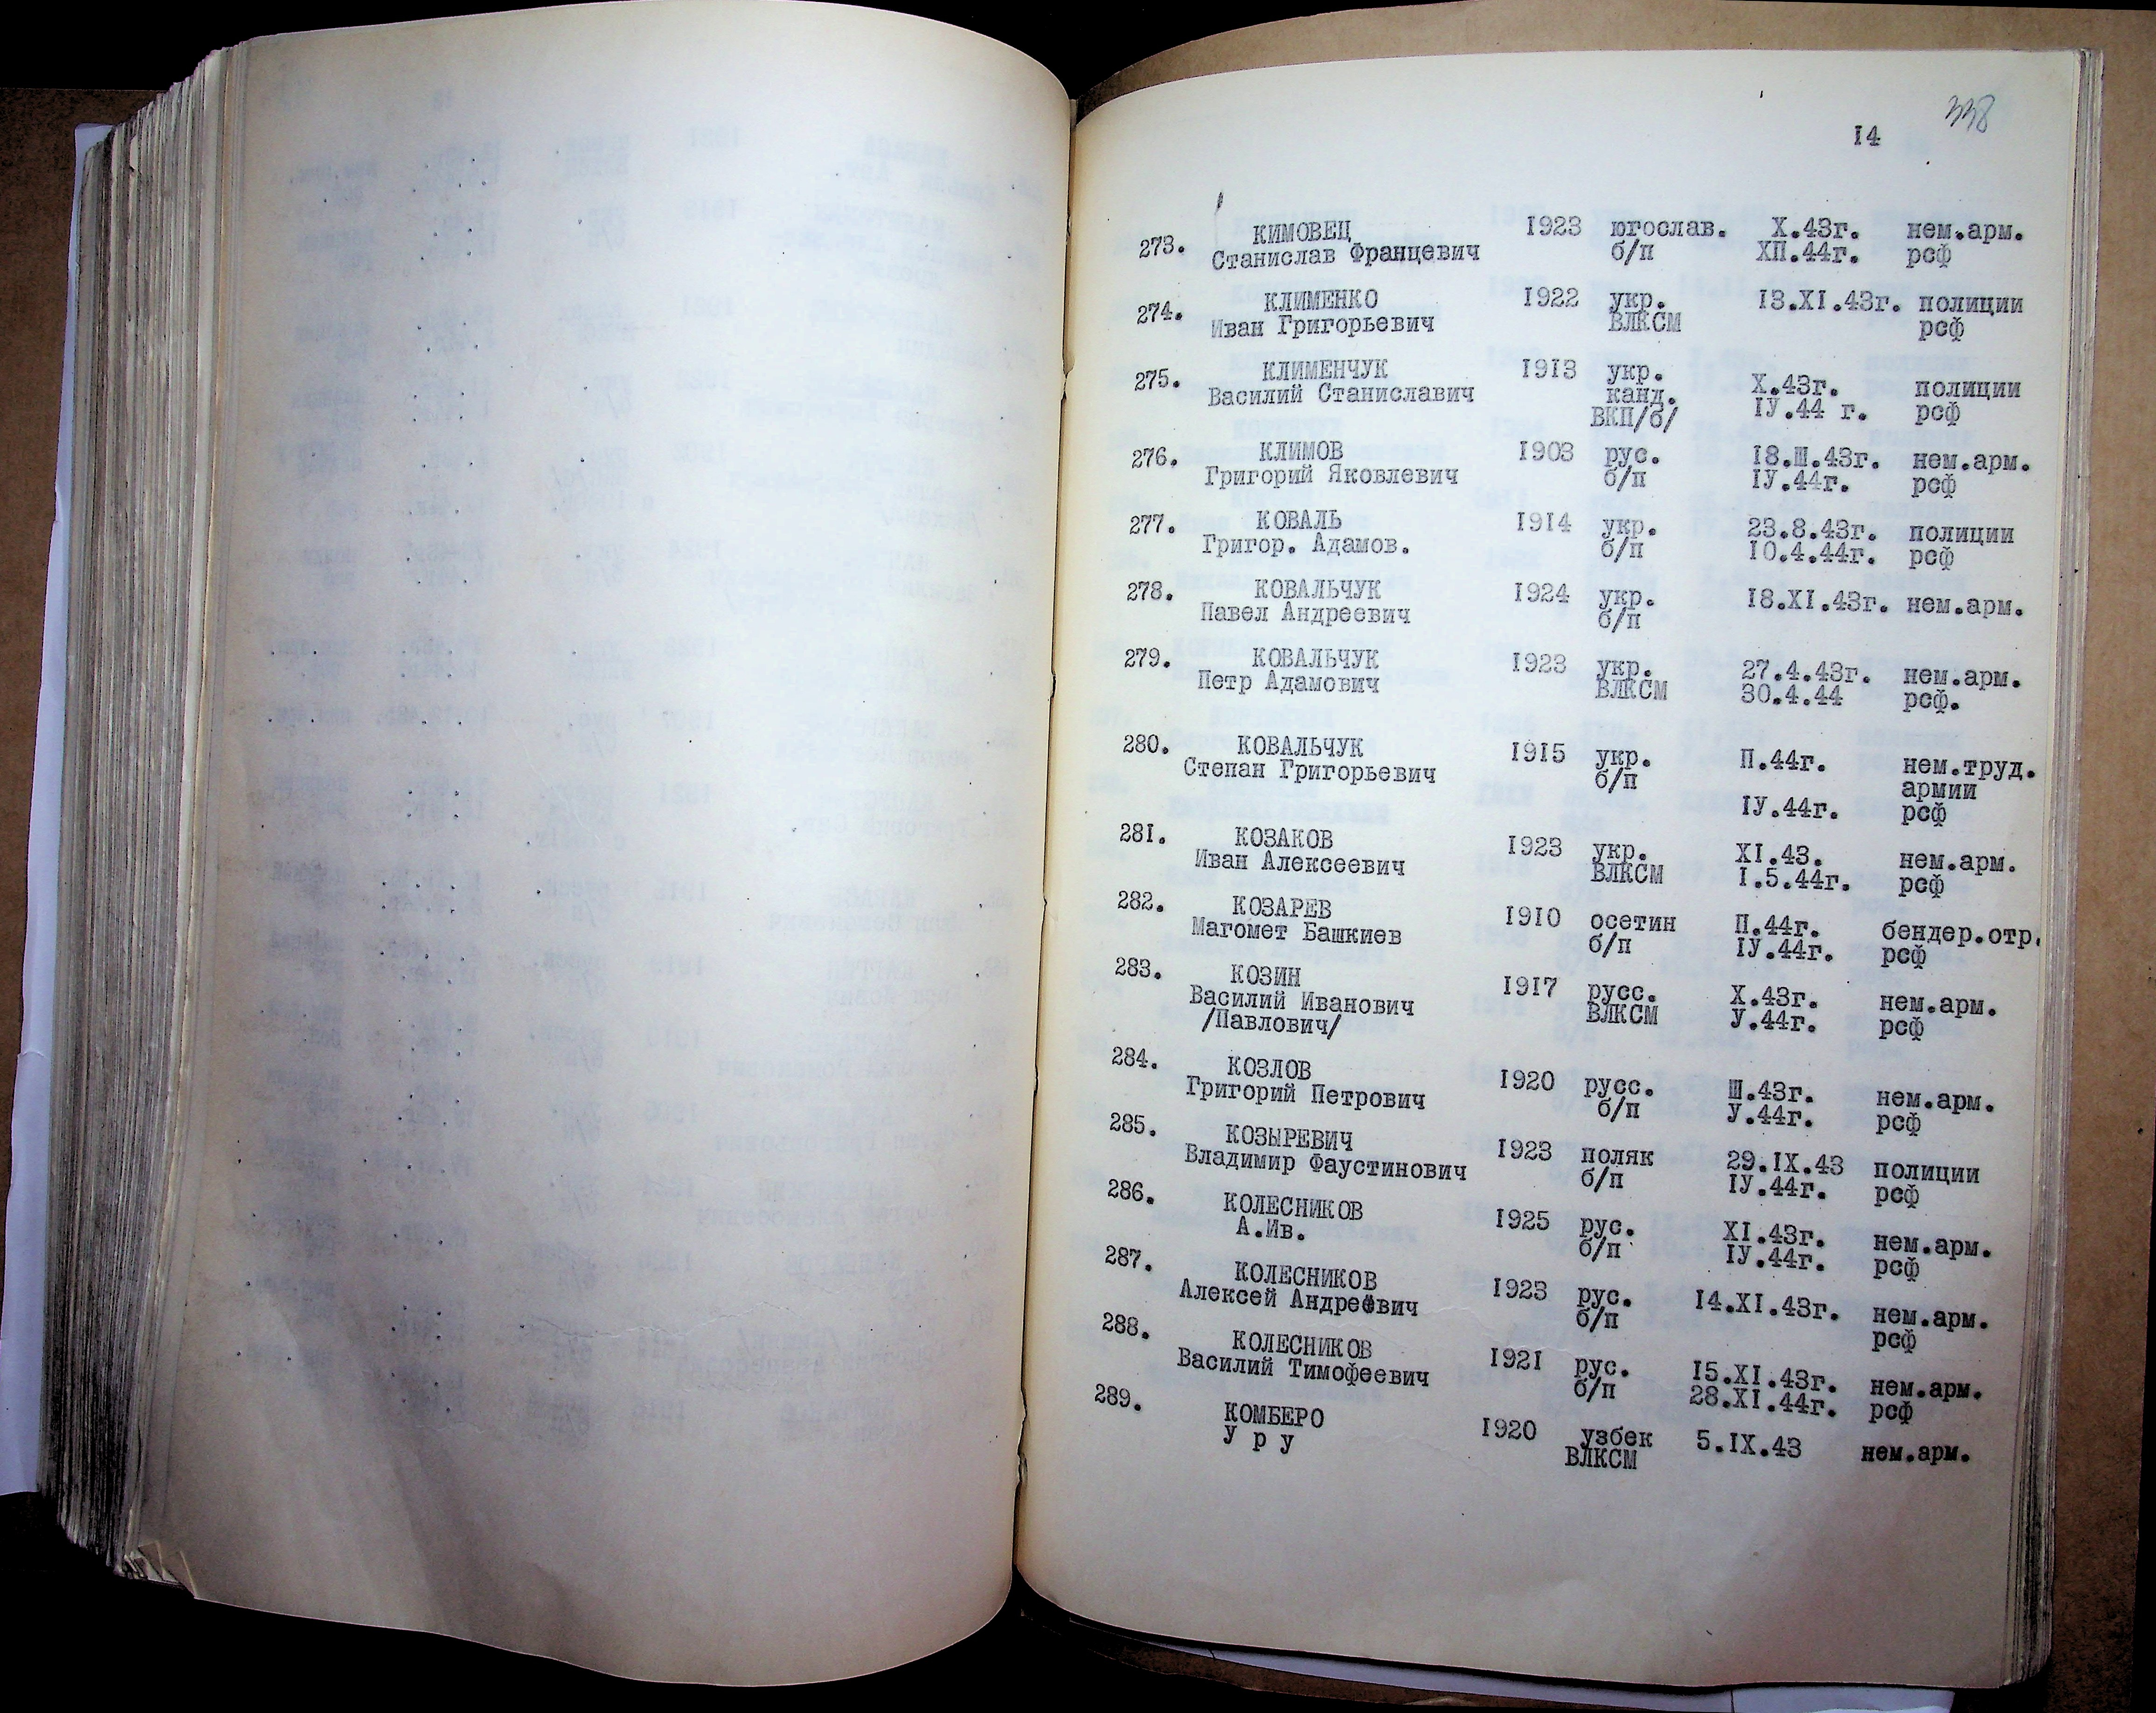 338
I4
273. КИМОВЕЦ I923 югослав. X.43г. нем.арм.
Станислав Францевич б/п ХП.44г. рсф
274. КЛИМЕНКО I922 укр. I3.XI.43г. полиции
Иван Григорьевич ВЛКСМ рсф
275. КЛИМЕНЧУК I913 укр. X.43г. полиции
Василий Станиславич канд. IУ.44 г. рсф
ВКП/б/
276. КЛИМОВ I903 рус. I8.Ш.43г. нем.арм.
Григорий Яковлевич б/п IУ.44г. рсф
277. КОВАЛЬ I9I4 укр. 23.8.43г. полиции
Григор. Адамов. б/п I0.4.44г. рсф
278. КОВАЛЬЧУК I924 укр. I8.XI.43г. нем.арм.
Павел Андреевич б/п
279. КОВАЛЬЧУК I923 укр. 27.4.43г. нем.арм.
Петр Адамович ВЛКСМ 30.4.44 рсф.
280. КОВАЛЬЧУК I9I5 укр. П.44г. нем.труд.
Степан Григорьевич б/п армии
IУ.44г. рсф
28I. КОЗАКОВ I923 укр. XI.43. нем.арм.
Иван Алексеевич ВЛКСМ I.5.44г. рсф
282. КОЗАРЕВ I9I0 осетин П.44г. бендер.отр.
Магомет Башкиев б/п IУ.44г. рсф
283. КОЗИН I9I7 русс. X.43г. нем.арм.
Василий Иванович ВЛКСМ У.44г. рсф
/Павлович/
284. КОЗЛОВ I920 русс. Ш.43г. нем.арм.
Григорий Петрович б/п У.44г. рсф
285. КОЗЫРЕВИЧ I923 поляк 29.IX.43 полиции
Владимир Фаустинович б/п IУ.44г. рсф
286. КОЛЕСНИКОВ I925 рус. XI.43г. нем.арм.
А.Ив. б/п IУ.44г. рсф
287. КОЛЕСНИКОВ I923 рус. I4.XI.43г. нем.арм.
Алексей Андреевич б/п рсф
288. КОЛЕСНИКОВ I92I рус. I5.XI.43г. нем.арм.
Василий Тимофеевич б/п 28.XI.44г. рсф
289. КОМБЕРО I920 узбек 5.IX.43 нем.арм.
У р у ВЛКСМ